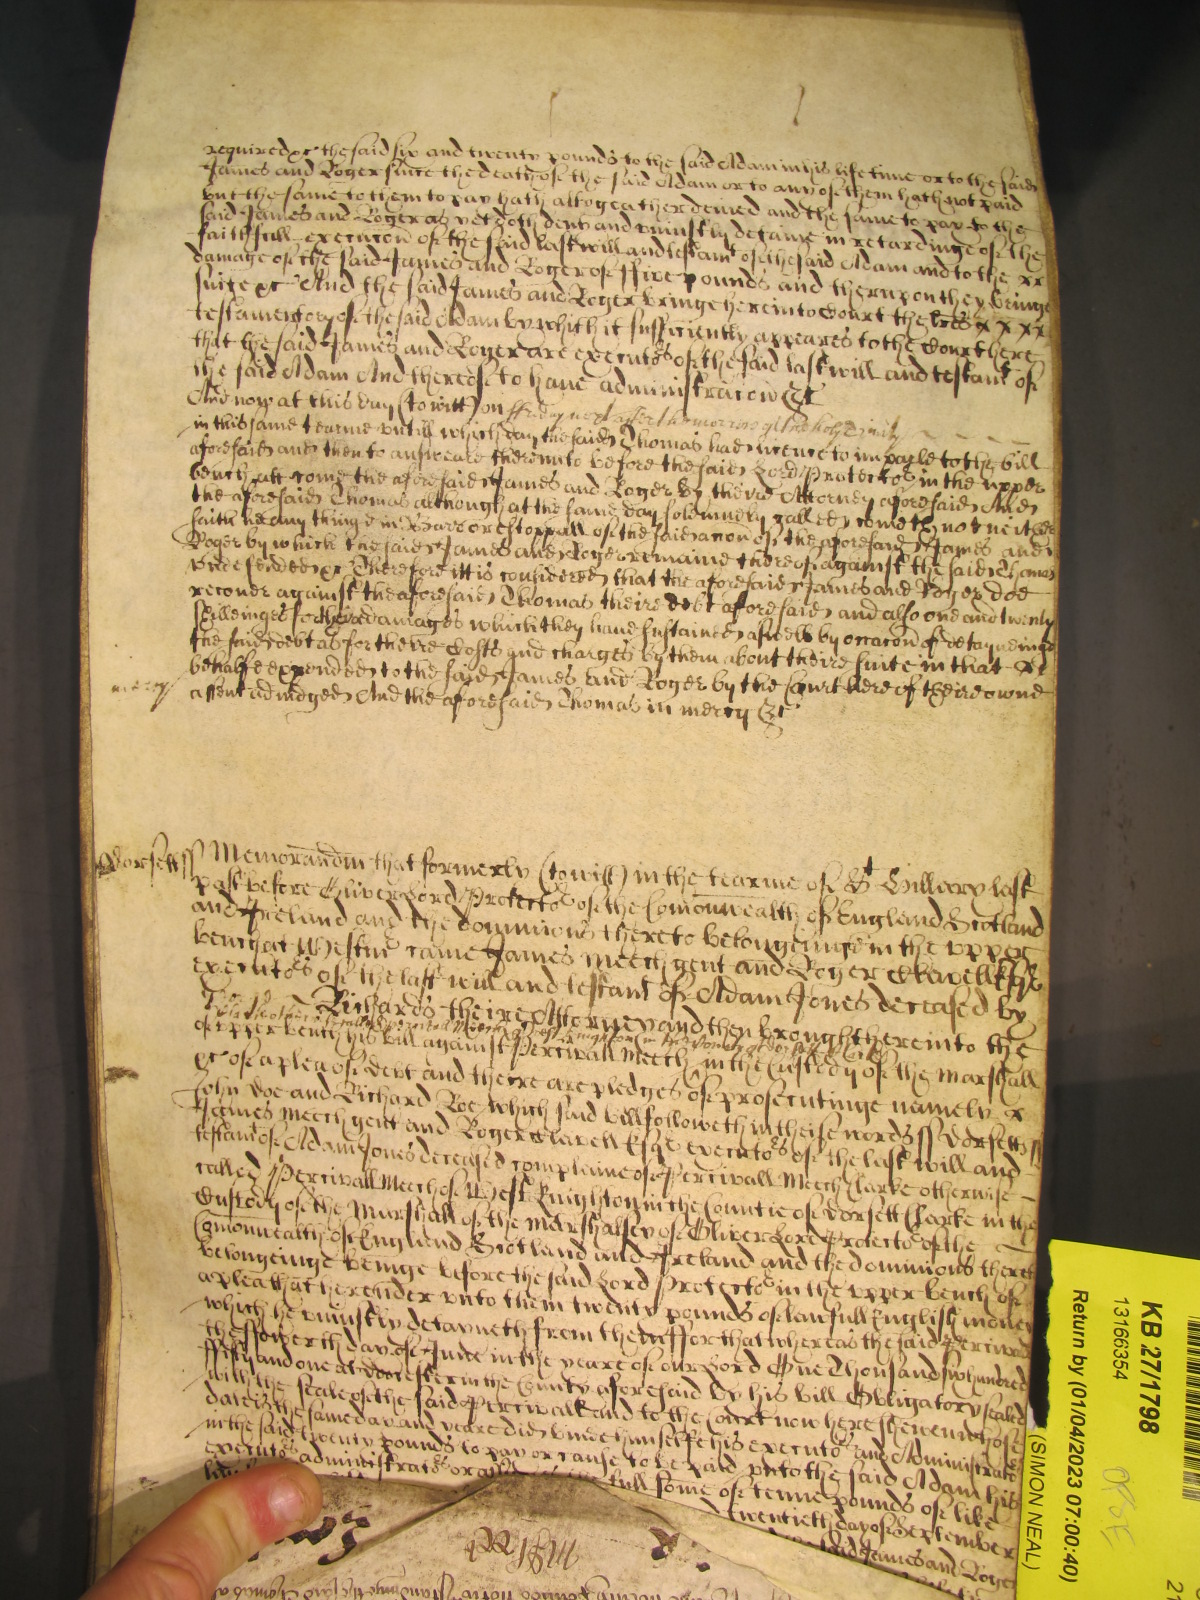 required &c the said six and twenty pounds to the said Adam in his life time or to the said
James and Roger since the death of the said Adam or to any of them hath not paid
but the same to them to pay hath altogeather denied and the same to pay to the
said James and Roger as yet doth deny and uniustly detaine in retardinge of the
faithfull execucon of the said last will and testamt of the said Adam and to the xx
damage of the said James and Roger of ffive pounds and therupon they bringe
suite &c And the said James and Roger bringe here into Court the lres x x x x
testamentory of the said Adam by which it sufficiently appeares to the Court here
that the said James and Roger are executors of the said last will and testamt of
the said Adam And thereof to have administracon &c
And now at this day (to witt) on ffriday next after the morrow of the holy Trinity
in this same tearme untill which day the said Thomas had licence to imparle to the bill
aforesaid and then to answeare thereunto before the said Lord Protector in the upper
bench att come the aforesaid James and Roger by theire Attorney aforesaid And
the aforesaid Thomas although at the same day solemnely called cometh not neither
saith he any thinge in Barr or estoppall of the said accon of the aforesaid James and
Roger by which the said James and Roger remaine thereof against the said Thomas
undefended &c Therefore itt is considered that the aforesaid James and Roger doe
recover against the aforesaid Thomas theire debt aforesaid and also one and twenty
shillinges for theire damages which they have sustained aswell by occacon of detayneinge
the said debt as for theire Costs and charges by them about theire suite in that
behalfe expended to the said James and Roger by the Court here of theire owne
mercy
assent adiudged And the aforesaid Thomas in mercy &c
Dorsett ss
Memorandm that formerly (to witt) in the tearme of St Hillary last
past before Oliver Lord Protector of the Comonwealth of England Scotland
and Ireland and the dominions thereto belongeinge in the upper
bench at Westmr came James Meech gent and Roger Clavell Esqr
executors of the last will and testamt of Adam Jones deceased by
Richards theire Attorney and then brought there into the
of upper bench his bill against Percivall Meech in the Custody of the Marshall
&c of a plea of debt and there are pledges of prosecutinge namely x
John Doe and Richard Roe which said bill followeth in theise words ss Dorsett ss
James Meech gent and Roger Clavell Esqr executors of the last will and
testamt of Adam Jones deceased complaine of Percivall Meech Clarke otherwise
called Percivall Meech of West Knighton in the Countie of Dorsett Clarke in the
Custody of the Marshall of the Marshalsey of Oliver Lord Protector of the
Comonwealth of England Scotland and Ireland and the dominions thereto
belongeinge beinge before the said Lord Protector in the upper bench of
a plea that he render unto them twenty pounds of lawfull English money
which he uniustly detayneth from them ffor that whereas the said Percivall
the ffowerth day of June in the yeare of our Lord One Thousand six hundred
ffifty and one at Dorchester in the County aforesaid by his bill Obligatory sealed
with the seale of the said Percivall and to the Court now here shewen whose
date is the same day and yeare did binde himselfe his executors and Administrators
in the said twenty pounds to pay or cause to be paid unto the said Adam his
executors administrators or full some of tenne pounds of like
twentieth day of September
said James and Roger
KB 27/1798
13166354
Return by (01/04/2023 07:00:40)
(SIMON NEAL)